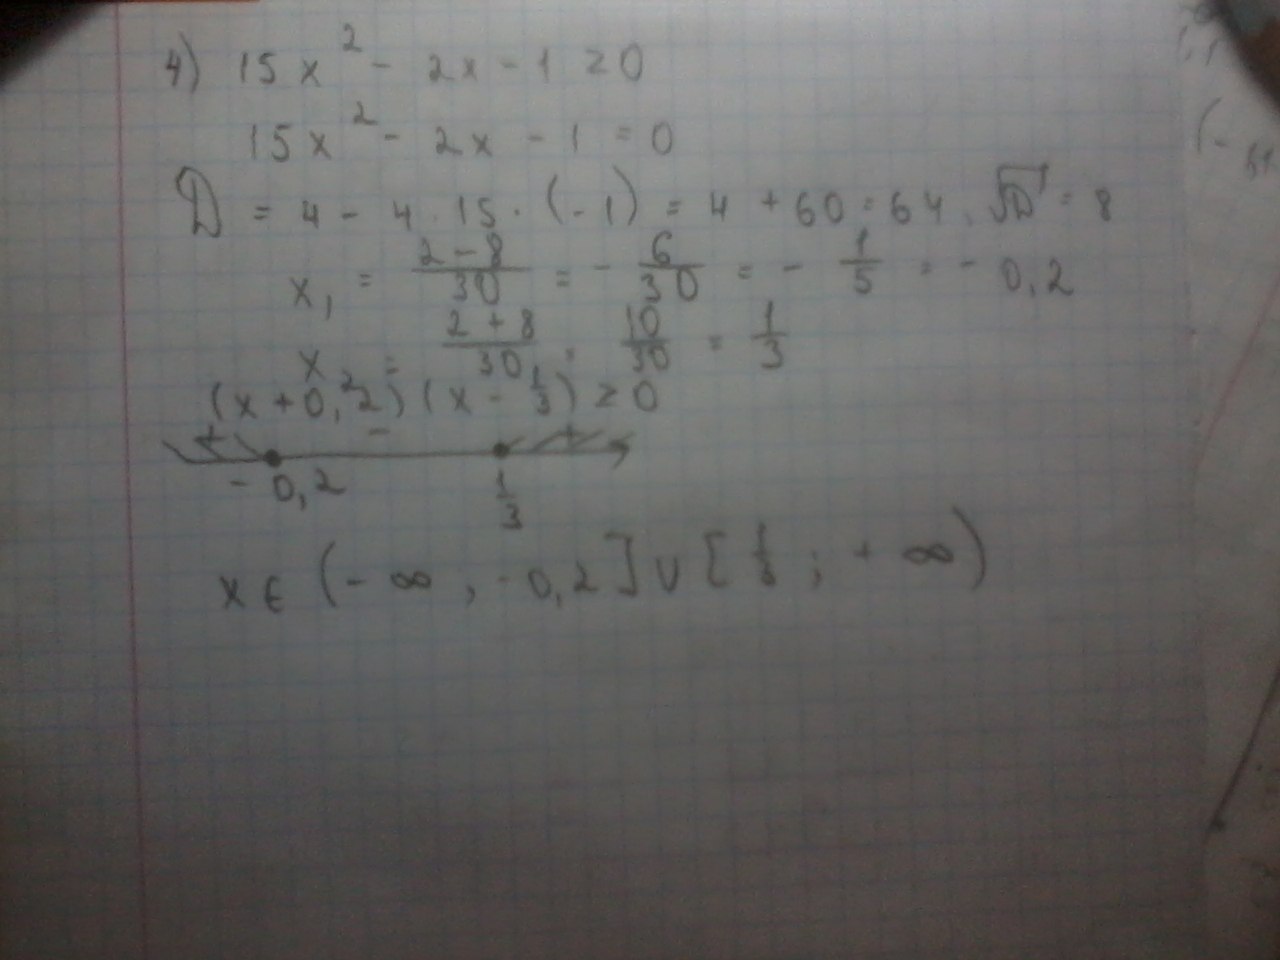 4) 15x² - 2x - 1 ≥ 0
15x² - 2x - 1 = 0
D = 4 - 4 · 15 · (-1) = 4 + 60 = 64, √D = 8
x₁ = (2 - 8)/30 = - 6/30 = - 1/5 = - 0,2
x₂ = (2 + 8)/30 = 10/30 = 1/3
(x + 0,2)(x - 1/3) ≥ 0
+ - +
- 0,2 1/3
x ∈ (- ∞ ; - 0,2] ∪ [1/3 ; + ∞)